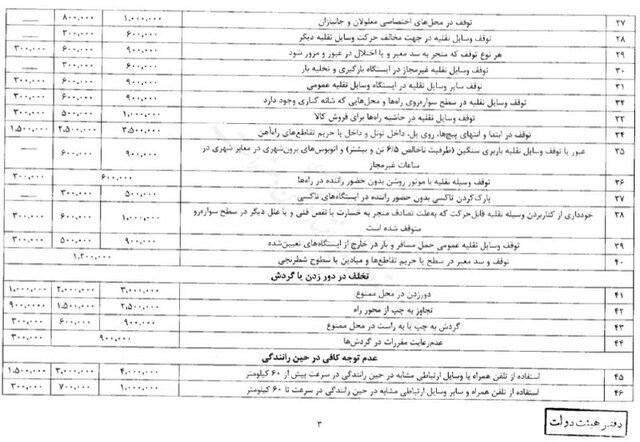 ۲۷ توقف در محل‌های اختصاصی معلولان و جانبازان ۱،۰۰۰،۰۰۰ ۸۰۰،۰۰۰ ——
۲۸ توقف وسایل نقلیه در جهت مخالف حرکت وسایل نقلیه دیگر ۶۰۰،۰۰۰ ۳۰۰،۰۰۰ ——
۲۹ هر نوع توقف که منجر به سد معبر و یا اختلال در عبور و مرور شود ۹۰۰،۰۰۰ ۶۰۰،۰۰۰ ۳۰۰،۰۰۰
۳۰ توقف وسایل نقلیه غیرمجاز در ایستگاه بارگیری و تخلیه بار ۶۰۰،۰۰۰ ۳۰۰،۰۰۰ ——
۳۱ توقف سایر وسایل نقلیه در ایستگاه وسایل نقلیه عمومی ۹۰۰،۰۰۰ ۶۰۰،۰۰۰ ۳۰۰،۰۰۰
۳۲ توقف وسایل نقلیه در سطح سواره‌روی راه‌ها و محل‌هایی که شانه کناری وجود دارد ۹۰۰،۰۰۰ ۶۰۰،۰۰۰ ۳۰۰،۰۰۰
۳۳ توقف وسایل نقلیه در حاشیه راه‌ها برای فروش کالا ۱،۰۰۰،۰۰۰ ۵۰۰،۰۰۰ ۳۰۰،۰۰۰
۳۴ توقف در ابتدا و انتهای پیچ‌ها، روی پل، داخل تونل و داخل یا حریم تقاطع‌های راه‌آهن ۳،۵۰۰،۰۰۰ ۲،۵۰۰،۰۰۰ ۱،۵۰۰،۰۰۰
۳۵ عبور یا توقف وسایل نقلیه باربری سنگین (ظرفیت ناخالص ۶/۵ تن و بیشتر) و اتوبوس‌های برون‌شهری در معابر شهری در
ساعات غیرمجاز ۹۰۰،۰۰۰ ۶۰۰،۰۰۰ ——
۳۶ توقف وسیله نقلیه با موتور روشن بدون حضور راننده در راه‌ها ۶۰۰،۰۰۰ ۳۰۰،۰۰۰
۳۷ پارک‌کردن تاکسی بدون حضور راننده در ایستگاه‌های تاکسی ۵۰۰،۰۰۰ ۳۰۰،۰۰۰ ——
۳۸ خودداری از کناربردن وسیله نقلیه قابل‌حرکت که به‌علت تصادف منجر به خسارت یا نقص فنی و یا علل دیگر در سطح سواره‌رو
متوقف شده است ۱،۰۰۰،۰۰۰ ۶۰۰،۰۰۰ ۳۰۰،۰۰۰
۳۹ توقف وسایل نقلیه عمومی حمل مسافر و بار در خارج از ایستگاه‌های تعیین‌شده ۹۰۰،۰۰۰ ۵۰۰،۰۰۰ ۳۰۰،۰۰۰
۴۰ توقف و سد معبر در سطح یا حریم تقاطع‌ها و میادین با سطوح شطرنجی ۱،۲۰۰،۰۰۰
تخلف در دور زدن یا گردش
۴۱ دورزدن در محل ممنوع ۳،۰۰۰،۰۰۰ ۲،۰۰۰،۰۰۰ ۱،۰۰۰،۰۰۰
۴۲ تجاوز به چپ از محور راه ۲،۵۰۰،۰۰۰ ۱،۵۰۰،۰۰۰ ۹۰۰،۰۰۰
۴۳ گردش به چپ یا به راست در محل ممنوع ۹۰۰،۰۰۰ ۶۰۰،۰۰۰ ۳۰۰،۰۰۰
۴۴ عدم‌رعایت مقررات در گردش‌ها ۹۰۰،۰۰۰ ۳۰۰،۰۰۰
عدم توجه کافی در حین رانندگی
۴۵ استفاده از تلفن همراه یا وسایل ارتباطی مشابه در حین رانندگی در سرعت بیش از ۶۰ کیلومتر ۴،۰۰۰،۰۰۰ ۳،۰۰۰،۰۰۰ ۱،۵۰۰،۰۰۰
۴۶ استفاده از تلفن همراه و سایر وسایل ارتباطی مشابه در حین رانندگی در سرعت تا ۶۰ کیلومتر ۱،۰۰۰،۰۰۰ ۷۰۰،۰۰۰ ۳۰۰،۰۰۰
۳
دفتر هیئت دولت